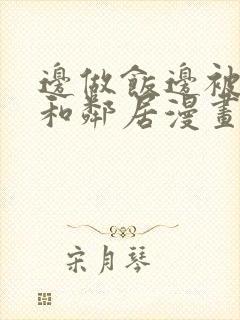 邊做飯邊被
和鄰居漫畫
宋月琴